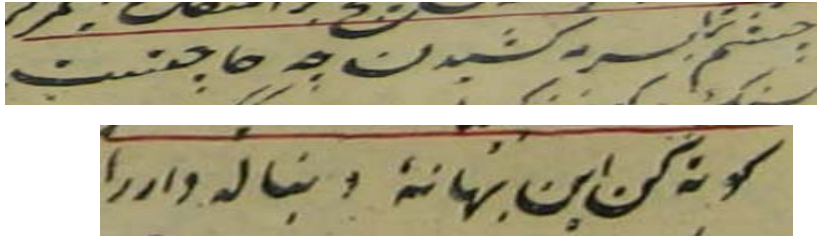 چشم ترا بسرمه کشیدن چه حاجتست
کوته کن این بهانهٔ دنباله دار را